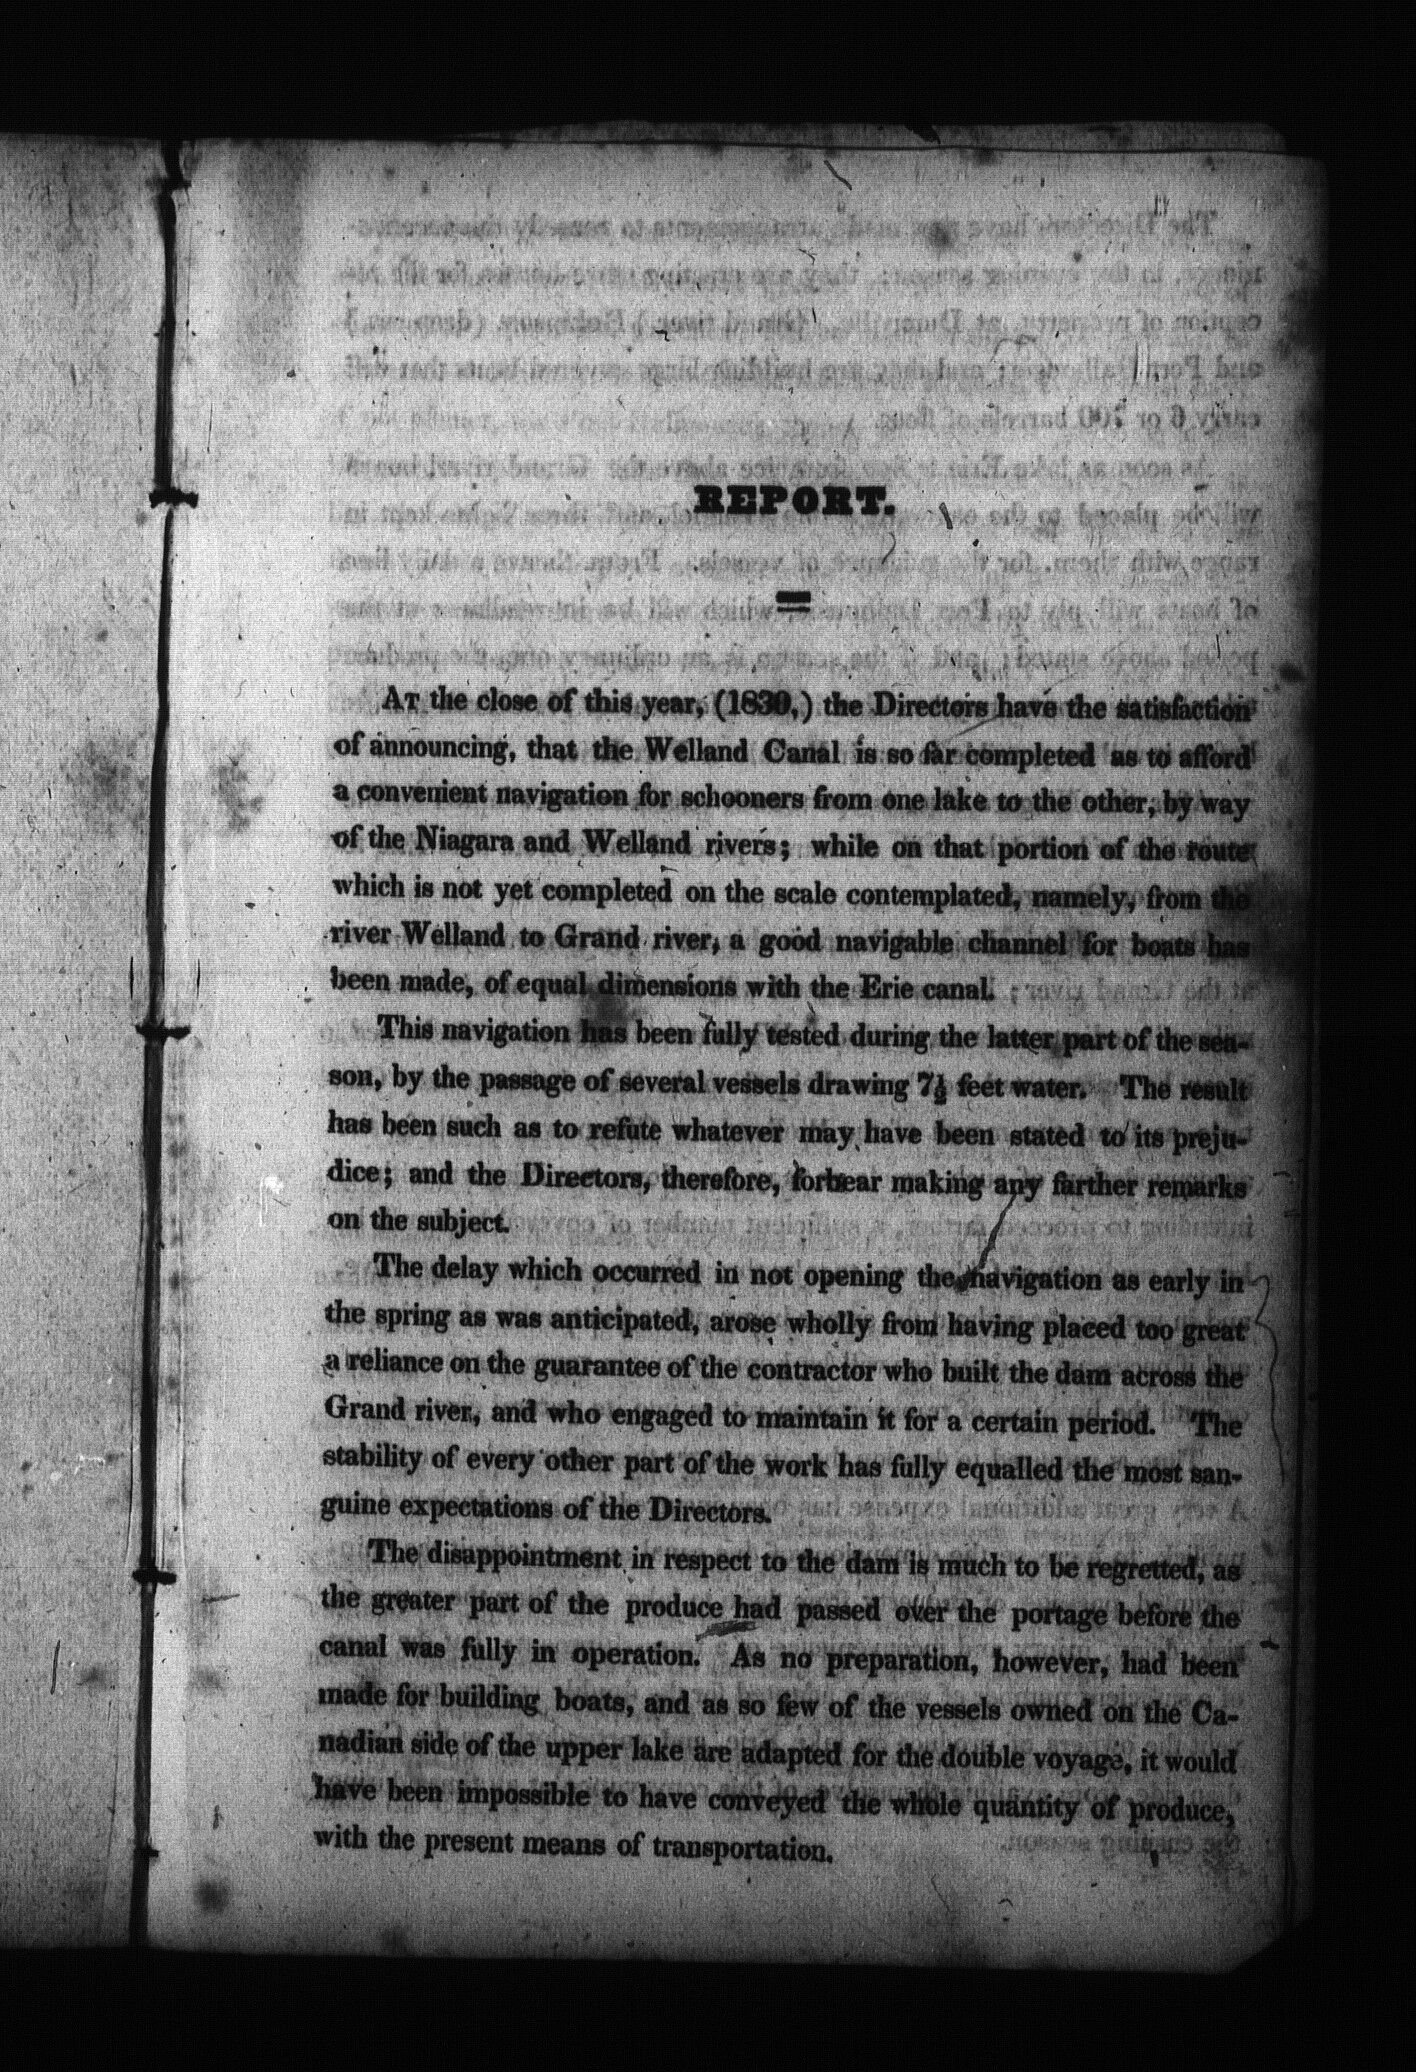 REPORT.
At the close of this year, (1830,) the Directors have the satisfaction
of announcing, that the Welland Canal is so far completed as to afford
a convenient navigation for schooners from one lake to the other, by way
of the Niagara and Welland rivers; while on that portion of the route
which is not yet completed on the scale contemplated, namely, from the
river Welland to Grand river, a good navigable channel for boats has
been made, of equal dimensions with the Erie canal.
This navigation has been fully tested during the latter part of the sea-
son, by the passage of several vessels drawing 7½ feet water. The result
has been such as to refute whatever may have been stated to its preju-
dice; and the Directors, therefore, forbear making any farther remarks
on the subject.
The delay which occurred in not opening the navigation as early in
the spring as was anticipated, arose wholly from having placed too great
a reliance on the guarantee of the contractor who built the dam across the
Grand river, and who engaged to maintain it for a certain period. The
stability of every other part of the work has fully equalled the most san-
guine expectations of the Directors.
The disappointment in respect to the dam is much to be regretted, as
the greater part of the produce had passed over the portage before the
canal was fully in operation. As no preparation, however, had been
made for building boats, and as so few of the vessels owned on the Ca-
nadian side of the upper lake are adapted for the double voyage, it would
have been impossible to have conveyed the whole quantity of produce,
with the present means of transportation.